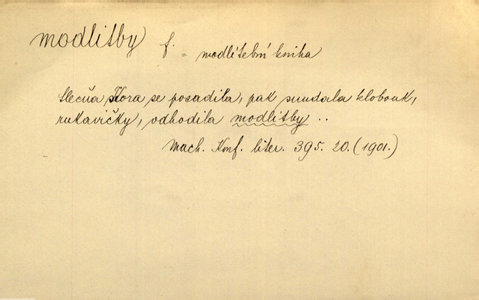 modlitby f. = modlitební kniha
Slečna Flora se posadila, pak sundala klobouk,
rukavičky, odhodila modlitby ..
Mach. Konf. liter. 395. 20. (1901.)